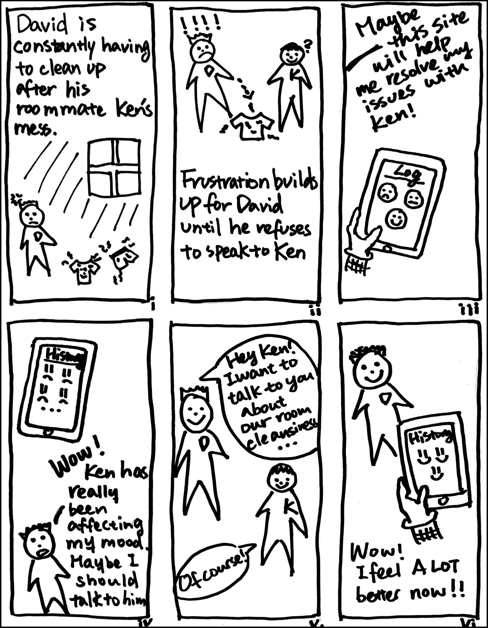 David is
constantly having
to clean up
after his
roommate Ken's
mess.
D
i
!!!!
?
D
K
Frustration builds
up for David
until he refuses
to speak to Ken
ii
Maybe
this site
will help
me resolve my
issues with
Ken!
Log
iii
History
Wow!
Ken has
really
been
affecting
my mood.
Maybe I
should
talk to him
iv
Hey Ken!
I want to
talk to you
about
our room
cleansiness
...
D
K
Of course!
v
D
History
Wow!
I feel A LOT
better now!!
vi